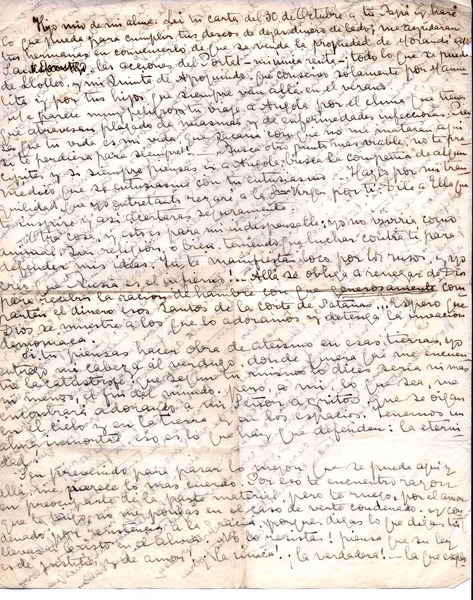 Hijo mío de mi alma: Leí tu carta del 30 de Octubre a tu Papá y haré
lo que pueda para cumplir tus deseos de dejar dinero de lado; me ayudarán
tus hermanas en convencerlo de que se venda la propiedad de Morandé esq.
las acciones del Portal - mi única renta - y todo lo que se pueda
de Lolleo y mi Quinta de Apoquindo que conservo solamente por Manue
lita y por tus hijos que siempre van allá en el verano.
Me parece muy peligroso tu viaje a Angola por el clima que tienes
que atravesar plagado de miasmas y de enfermedades infecciosas. Pien
sa que tu vida es mi vida que sacarías con que no me mataran aquí
si te perdiera para siempre! - Busca otro punto mas viable, no te pre
cipites y si siempre piensas ir a Angola, busca la compañía de algún
médico que se entusiasme con tu entusiasmo. Hazlo por mi tran
quilidad que yo entretanto rezaré a la Virgen por ti. Pide a Ella que
te inspire y así acertarás seguramente.
Otra cosa, y esto es para mi indispensable: yo no viviría como
animal, sin religión, o bien, teniendo que luchar contra ti para
defender mis ideas. Tu te manifiestas loco por los rusos, y yo
creo que Rusia es el infierno!... Allí se obliga a renegar de Dios
para recibir la ración de hambre con que generosamente com
parten el dinero los Santos de la Corte de Satanás. Espero que
Dios se muestre a los que lo adoramos y detenga la invasión
demoniaca!
Si tu piensas hacer obra de ateísmo en esas tierras, yo
entrego mi cabeza al verdugo donde quiera que me encuen
tre la catástrofe, que según tu mismo lo dices sería ni mas
ni menos, el fin del mundo. Pero, a mi, lo que sea, me
encontrará adorando a mi Señor a gritos que se oigan
en el cielo y en la tierra y por los espacios. Tenemos un
alma inmortal, eso es lo que hay que defender: la eterni
dad.
Tan prevenido para pasar lo mejor que se pueda aquí y
allá, me parece lo mas cuerdo. Por eso te encuentro razón
en preocuparte de la parte material, pero te ruego, por el amor
que te tengo, no me pongas en el caso de verte condenado, y con
denado por resistencia a la gracia, porque digas lo que digas tu
llevas a Cristo en el alma. No lo resistas! piensa que su ley
es de justicia y de amor!. La única!.. la verdadera!- la que